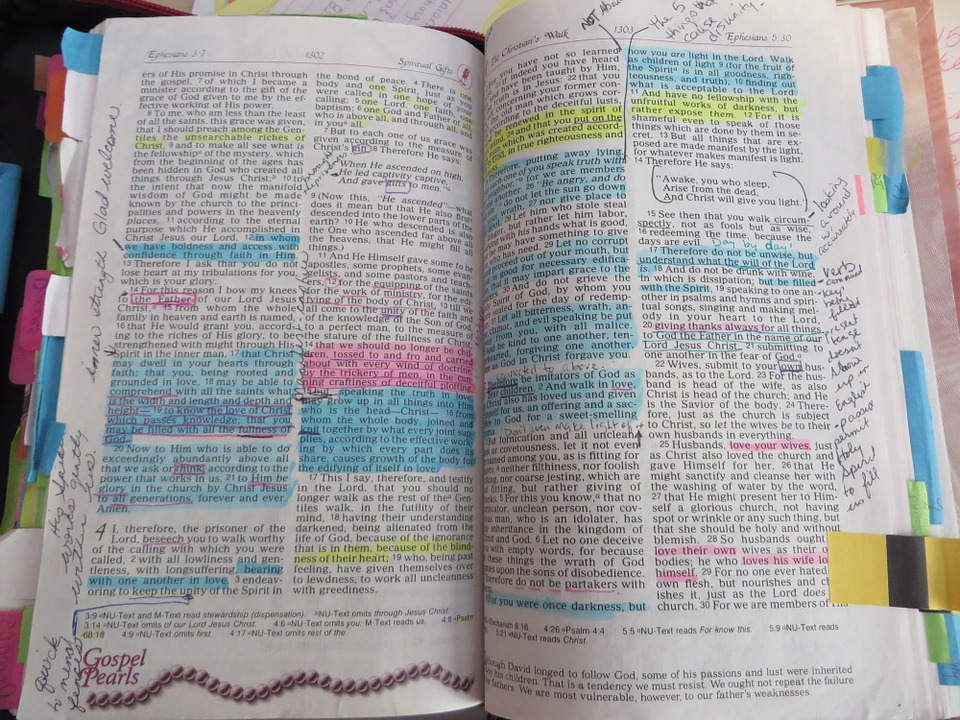 Ephesians 3:7
1302
Spiritual Gifts
ers of His promise in Christ through
the gospel, 7 of which I became a
minister according to the gift of the
grace of God given to me by the ef-
fective working of His power.
8 To me, who am less than the least
of all the saints, this grace was given,
that I should preach among the Gen-
tiles the unsearchable riches of
Christ, 9 and to make all see what is
the fellowship of the mystery, which
from the beginning of the ages has
been hidden in God who created all
things through Jesus Christ; 10 to
the intent that now the manifold
wisdom of God might be made
known by the church to the princi-
palities and powers in the heavenly
places, 11 according to the eternal
purpose which He accomplished in
Christ Jesus our Lord, 12 in whom
we have boldness and access with
confidence through faith in Him.
13 Therefore I ask that you do not
lose heart at my tribulations for you,
which is your glory.
14 For this reason I bow my knees
to the Father of our Lord Jesus
Christ, 15 from whom the whole
family in heaven and earth is named,
16 that He would grant you, accord-
ing to the riches of His glory, to be
strengthened with might through His
Spirit in the inner man, 17 that Christ
may dwell in your hearts through
faith; that you, being rooted and
grounded in love, 18 may be able to
comprehend with all the saints what
is the width and length and depth and
height— 19 to know the love of Christ
which passes knowledge; that you
may be filled with all the fullness of
God.
20 Now to Him who is able to do
exceedingly abundantly above all
that we ask or think, according to the
power that works in us, 21 to Him be
glory in the church by Christ Jesus
to all generations, forever and ever.
Amen.
4 I, therefore, the prisoner of the
Lord, beseech you to walk worthy
of the calling with which you were
called, 2 with all lowliness and gen-
tleness, with longsuffering, bearing
with one another in love, 3 endeav-
oring to keep the unity of the Spirit in
the bond of peace. 4 There is one
body and one Spirit, just as you
were called in one hope of your
calling; 5 one Lord, one faith, one
baptism; 6 one God and Father of all,
who is above all, and through all, and
in you all.
7 But to each one of us grace was
given according to the measure of
Christ's gift. 8 Therefore He says:
"When He ascended on high,
He led captivity captive,
And gave gifts to men."
9 (Now this, "He ascended"—what
does it mean but that He also first
descended into the lower parts of the
earth? 10 He who descended is also
the One who ascended far above all
the heavens, that He might fill all
things.)
11 And He Himself gave some to be
apostles, some prophets, some evan-
gelists, and some pastors and teach-
ers, 12 for the equipping of the saints
for the work of ministry, for the edi-
fying of the body of Christ, 13 till we
all come to the unity of the faith and
of the knowledge of the Son of God,
to a perfect man, to the measure of
the stature of the fullness of Christ;
14 that we should no longer be chil-
dren, tossed to and fro and carried
about with every wind of doctrine,
by the trickery of men, in the cun-
ning craftiness of deceitful plotting,
15 but, speaking the truth in love,
may grow up in all things into Him
who is the head—Christ— 16 from
whom the whole body, joined and
knit together by what every joint sup-
plies, according to the effective work-
ing by which every part does its
share, causes growth of the body for
the edifying of itself in love.
17 This I say, therefore, and testify
in the Lord, that you should no
longer walk as the rest of the Gen-
tiles walk, in the futility of their
mind, 18 having their understanding
darkened, being alienated from the
life of God, because of the ignorance
that is in them, because of the blind-
ness of their heart; 19 who, being past
feeling, have given themselves over
to lewdness, to work all uncleanness
with greediness.
3:9 NU-Text and M-Text read stewardship (dispensation). NU-Text omits through Jesus Christ.
3:14 NU-Text omits of our Lord Jesus Christ. 4:6 NU-Text omits you; M-Text reads us. 4:8 Psalm
68:18 4:9 NU-Text omits first. 4:17 NU-Text omits rest of the.
Gospel
Pearls
Glad welcome
inner strength
Christian's Walk
1303
Ephesians 5:30
the 5
things that
cause
disunity.
you have not so learned
if indeed you have heard
been taught by Him,
truth is in Jesus: 22 that you
concerning your former con-
man which grows cor-
to the deceitful lusts,
renewed in the spirit of
mind, 24 and that you put on the
man which was created accord-
ing to God, in true righteousness and
putting away lying,
of you speak truth with
for we are members
26 "Be angry, and do
do not let the sun go down
27 nor give place to
28 Let him who stole steal
longer, but rather let him labor,
with his hands what is good,
may have something to give
29 Let no corrupt
proceed out of your mouth, but
is good for necessary edifica-
that it may impart grace to the
30 And do not grieve the
Spirit of God, by whom you
sealed for the day of redemp-
Let all bitterness, wrath, an-
clamor, and evil speaking be put
from you, with all malice.
be kind to one another, ten-
forgiving one another,
God in Christ forgave you.
Therefore be imitators of God as
children. 2 And walk in love, as
Christ also has loved us and given
for us, an offering and a sac-
to God for a sweet-smelling
But fornication and all unclean-
or covetousness, let it not even
named among you, as is fitting for
4 neither filthiness, nor foolish
nor coarse jesting, which are
fitting, but rather giving of
5 For this you know, that no
fornicator, unclean person, nor cov-
man, who is an idolater, has
inheritance in the kingdom of
and God. 6 Let no one deceive
with empty words, for because
these things the wrath of God
upon the sons of disobedience.
Therefore do not be partakers with
For you were once darkness, but
now you are light in the Lord. Walk
as children of light 9 (for the fruit of
the Spirit is in all goodness, righ-
teousness, and truth), 10 finding out
what is acceptable to the Lord.
11 And have no fellowship with the
unfruitful works of darkness, but
rather expose them. 12 For it is
shameful even to speak of those
things which are done by them in se-
cret. 13 But all things that are ex-
posed are made manifest by the light,
for whatever makes manifest is light.
14 Therefore He says:
"Awake, you who sleep,
Arise from the dead,
And Christ will give you light."
15 See then that you walk circum-
spectly, not as fools but as wise,
16 redeeming the time, because the
days are evil. Day by day.
17 Therefore do not be unwise, but
understand what the will of the Lord
is. 18 And do not be drunk with wine,
in which is dissipation; but be filled
with the Spirit, 19 speaking to one an-
other in psalms and hymns and spir-
itual songs, singing and making mel-
ody in your heart to the Lord,
20 giving thanks always for all things
to God the Father in the name of our
Lord Jesus Christ, 21 submitting to
one another in the fear of God.
22 Wives, submit to your own hus-
bands, as to the Lord. 23 For the hus-
band is head of the wife, as also
Christ is head of the church; and He
is the Savior of the body. 24 There-
fore, just as the church is subject
to Christ, so let the wives be to their
own husbands in everything.
25 Husbands, love your wives, just
as Christ also loved the church and
gave Himself for her, 26 that He
might sanctify and cleanse her with
the washing of water by the word,
27 that He might present her to Him-
self a glorious church, not having
spot or wrinkle or any such thing, but
that she should be holy and without
blemish. 28 So husbands ought to
love their own wives as their own
bodies; he who loves his wife loves
himself. 29 For no one ever hated his
own flesh, but nourishes and cher-
ishes it, just as the Lord does the
church. 30 For we are members of His
looking
around
accurately
verb
command
keep
being
filled
present
tense
doesn't
show
up in
English
passive
permit
Holy
Spirit
to fill
us
Zechariah 8:16 4:26 Psalm 4:4 5:5 NU-Text reads For know this. 5:9 NU-Text reads
5:21 NU-Text reads Christ.
though David longed to follow God, some of his passions and lust were inherited
by his children. That is a tendency we must resist. We ought not repeat the failure
fathers. We are most vulnerable, however, to our father's weaknesses.